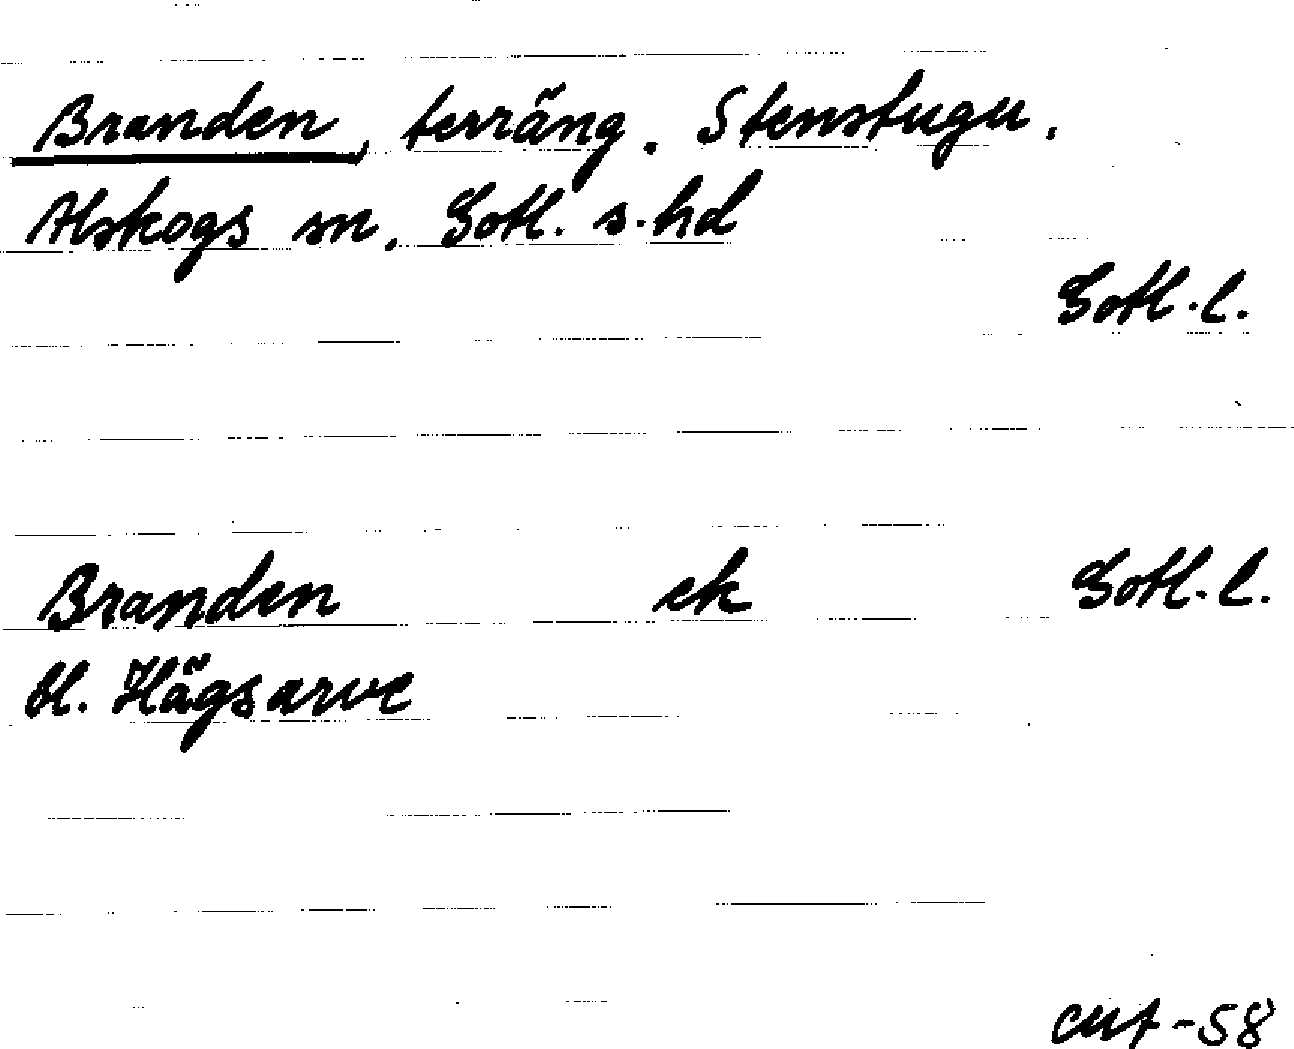 Branden, terräng. Stenstugu.
Alskogs sn. Gotl. s. hd
Gotl. l.
Branden ek Gotl. l.
bl. Hägsarve
-58